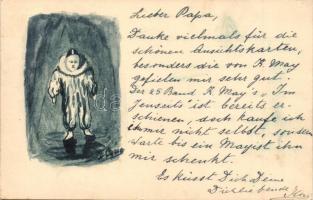 Lieber Papa,
Danke vielmals für die
schönen Ansichtskarten,
besonders die von K. May
gefielen mir sehr gut.
Der 25 Band K. May's "Im
Jenseits" ist bereits er-
schienen, doch kaufe ich
ihn mir nicht selbst, sondern
warte bis ein Mayist ihn
mir schenkt.
Es küsst Dich Deine
Dich liebende